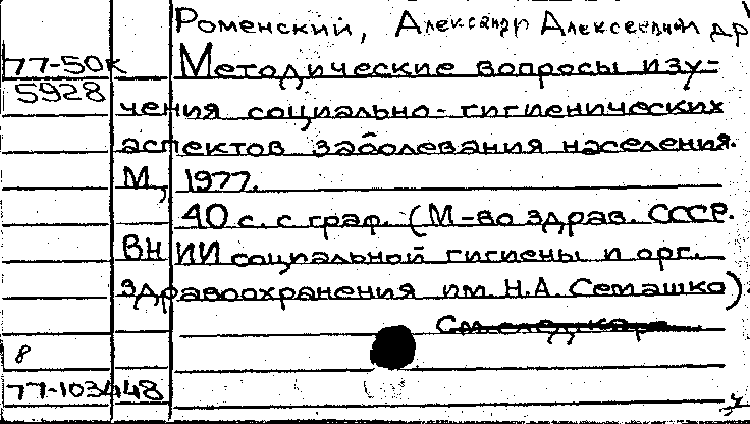 Роменский, Александр Алексеевич и др
77-50к Методические вопросы изу-
5928 чения социально-гигиенических
аспектов заболевания населения.
М, 1977.
40 с. с граф. (М-во здрав. СССР.
ВНИИ социальной гигиены и орг.
здравоохранения им. Н.А. Семашко)
См след карт
8
77-103448